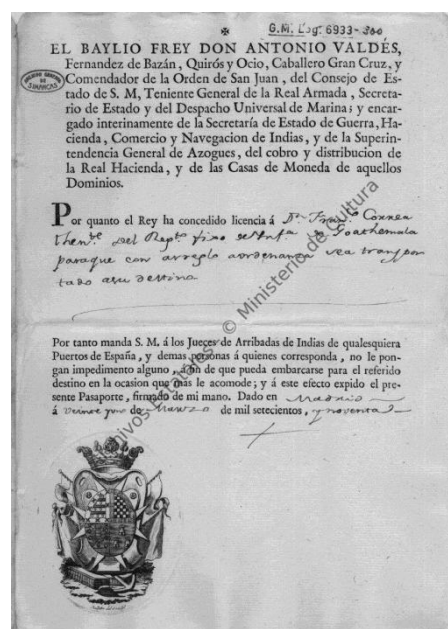 ✠
G.M. Leg. 6933-300
EL BAYLIO FREY DON ANTONIO VALDÉS,
Fernandez de Bazán, Quirós y Ocio, Caballero Gran Cruz, y
Comendador de la Orden de San Juan, del Consejo de Es-
tado de S. M, Teniente General de la Real Armada, Secreta-
rio de Estado y del Despacho Universal de Marina; y encar-
gado interinamente de la Secretaría de Estado de Guerra, Ha-
cienda, Comercio y Navegacion de Indias, y de la Superin-
tendencia General de Azogues, del cobro y distribucion de
la Real Hacienda, y de las Casas de Moneda de aquellos
Dominios.
SIMANCAS
Por quanto el Rey ha concedido licencia á Dn. Franco. Correa
thente. del Regto. fixo de Infa. de Goathemala
paraque con arreglo aordenanza sea transpor
tado asu destino
Por tanto manda S. M. á los Jueces de Arribadas de Indias de qualesquiera
Puertos de España, y demas personas á quienes corresponda, no le pon-
gan impedimento alguno, á fin de que pueda embarcarse para el referido
destino en la ocasion que mas le acomode; y á este efecto expido el pre-
sente Pasaporte, firmado de mi mano. Dado en Madrid
á veinte y uno de Marzo de mil setecientos, y noventa
© Ministerio de Cultura